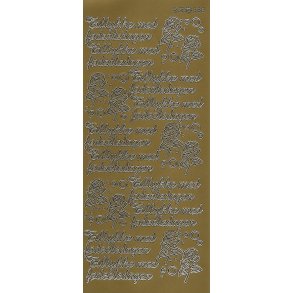 Tillykke med
fødselsdagen
Tillykke med
fødselsdagen
Tillykke med
fødselsdagen
Tillykke med
fødselsdagen
Tillykke med
fødselsdagen
Tillykke med
fødselsdagen
Tillykke med
fødselsdagen
Tillykke med
fødselsdagen